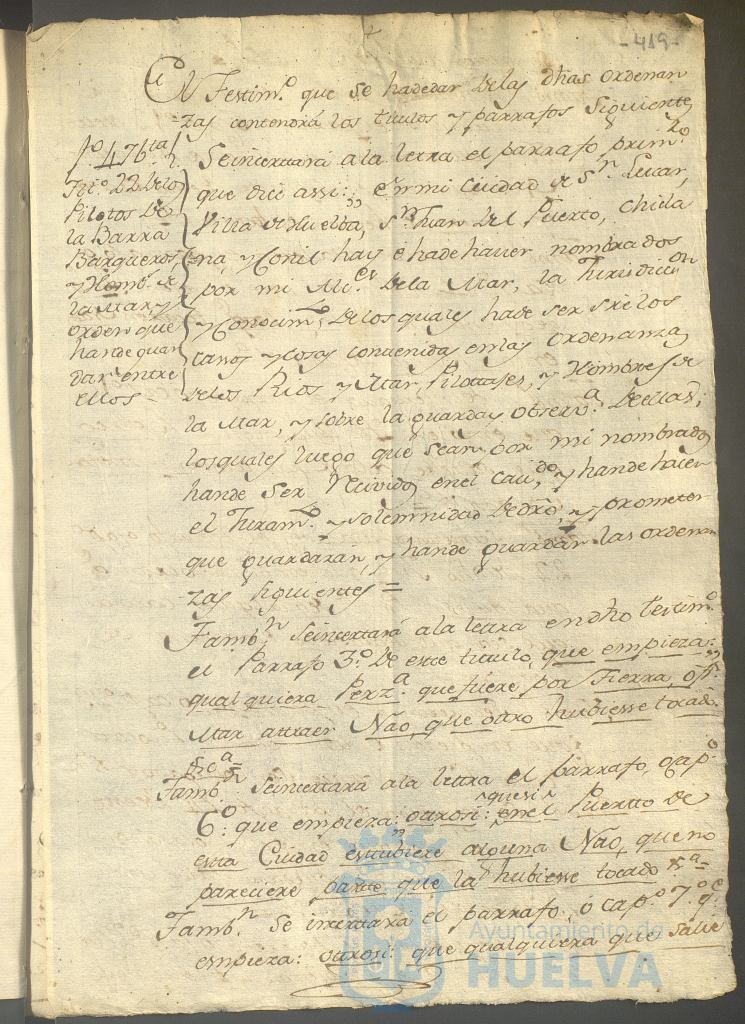 -419-
El Testim.º que se hadedar delas dhas ordenan
=zas contendrá los titulos y parrafos siguientes
fº. 476 bta
Tit.º 22 delos
Pilotos De
la Barra
Barqueros,
y Homb.s de
la Mar, y
orden que
hande guar
dar entre
ellos =
Seincertará ala letra el parrafo, prim.º
que dice assi:,, En mi Ciudad de S.n Lucar,
Villa de Huelba, S.n Juan del Puerto, Chicla
na, y Conil hay è hade haver nombrados
por mi Alc.es dela Mar, la Jurisdicc.on
y Conocim.to delos quales hade ser sre los
casos y cosas contenidas enlas ordenanzas
delos Rios y Mar, Pilotages, y Hombres de
la Mar, y sobre la guarda y observ.a deellas;
losquales luego que sean por mi nombrados
hande ser Recividos enel Cau.do y hande hacer
el Juram.to y solemnidad dedro, y prometer
que guardarán, y hande guardar las ordenan
zas siguientes =
Tamb.n seincertará ala letra endho testim.º
el Parrafo 3.º de este titulo, que empieza:
qualquiera Perz.a que fuere por Tierra, o p.r
Mar attraer Não, que otro hubiesse tocado
Tamb.n seincertará ala letra el parrafo, o cap.º
6.º que empieza: ottrosi: quesi enel Puertto de
esta Ciudad estubiere alguna Não, que no
pareciere parte que la hubiesse tocado &.a =
Tamb.n se incertará el parrafo, ó cap.º 7.º q.e
empieza: ottrosi: que qualquiera que salie
Ayuntamiento de
HUELVA